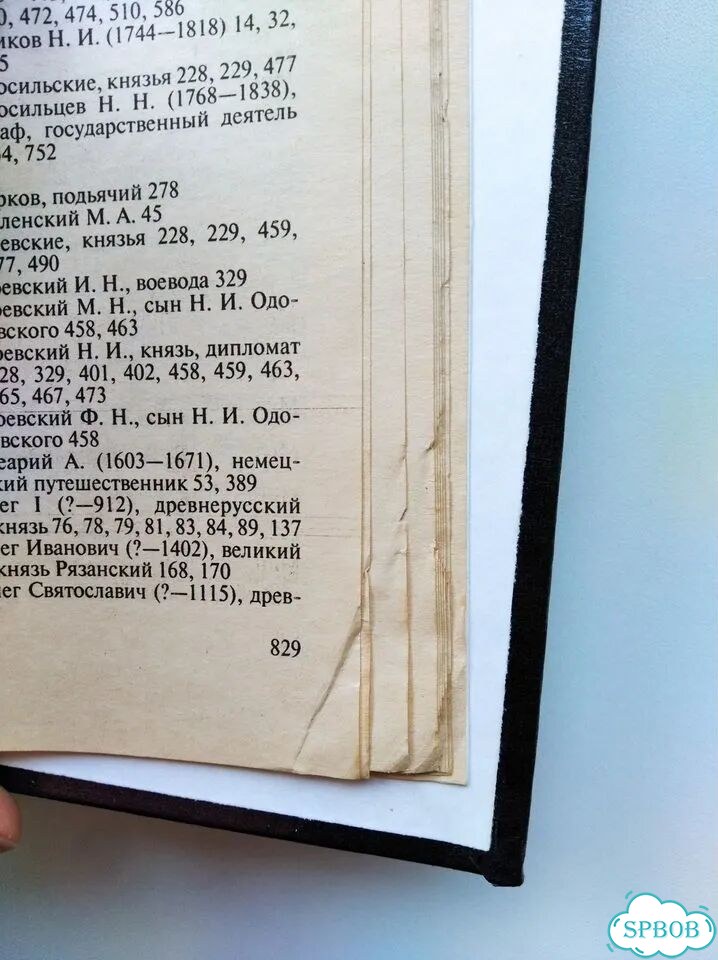 0, 472, 474, 510, 586
иков Н. И. (1744—1818) 14, 32,
5
осильские, князья 228, 229, 477
осильцев Н. Н. (1768—1838),
аф, государственный деятель
4, 752
рков, подьячий 278
ленский М. А. 45
евские, князья 228, 229, 459,
77, 490
евский И. Н., воевода 329
евский М. Н., сын Н. И. Одо-
вского 458, 463
оевский Н. И., князь, дипломат
28, 329, 401, 402, 458, 459, 463,
65, 467, 473
оевский Ф. Н., сын Н. И. Одо-
вского 458
еарий А. (1603—1671), немец-
кий путешественник 53, 389
ег I (?—912), древнерусский
князь 76, 78, 79, 81, 83, 84, 89, 137
ег Иванович (?—1402), великий
князь Рязанский 168, 170
лег Святославич (?—1115), древ-
829
SPBOB